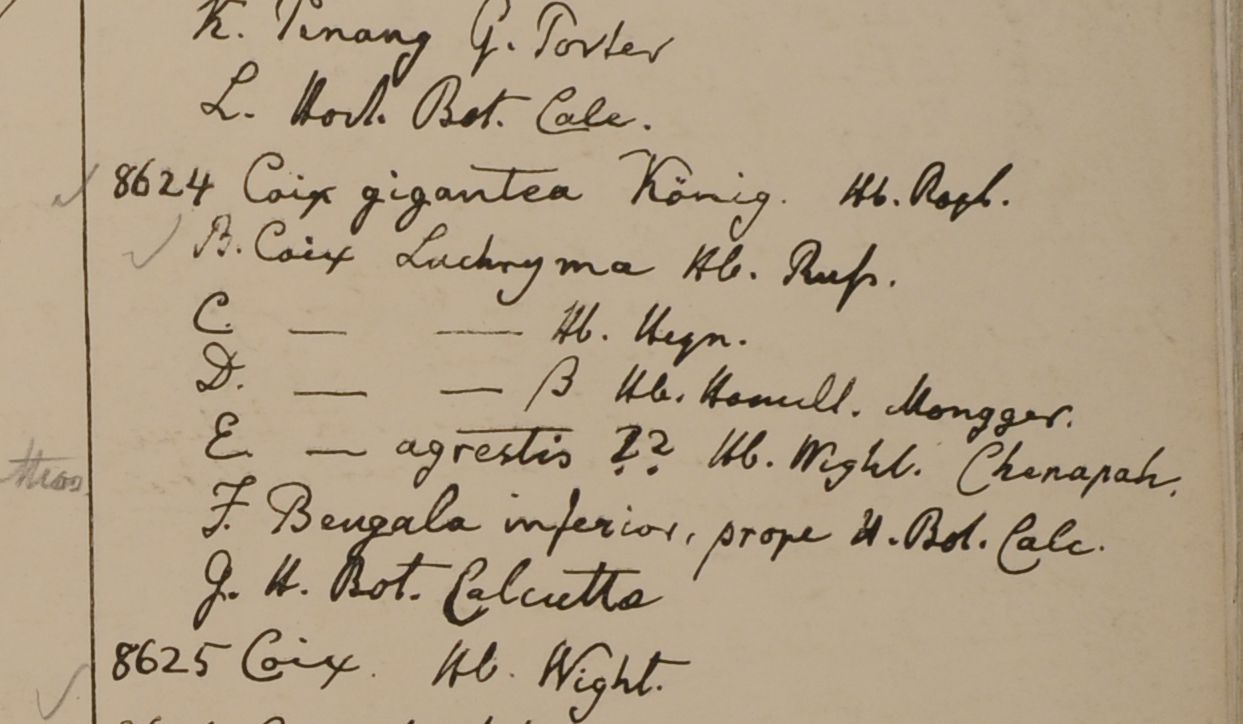 K. Pinang G. Porter
L. Hort. Bot. Calc.
8624 Coix gigantea König. Hb. Roxb.
B. Coix Lachryma Hb. Russ.
C. — — Hb. Heyn.
D. — — β Hb. Hamill. Mongger.
E. — agrestis ?? Hb. Wight. Chenapah.
F. Bengala inferior, prope H. Bot. Calc.
G. H. Bot. Calcutta
8625 Coix. Hb. Wight.